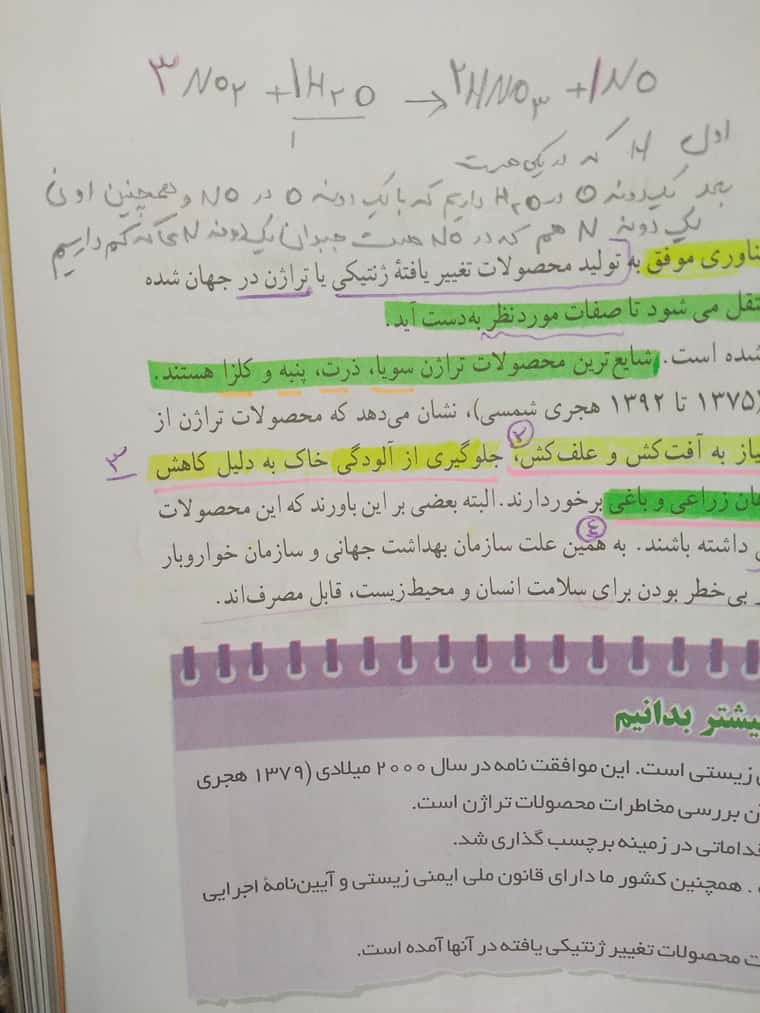 ۳NO۲ + ۱H۲O → ۲HNO۳ + ۱NO
۱
اول H که در یکی هست
بعد یکدونه O در H۲O داریم که با یک دونه O در NO و همچنین اونی
یک دونه N هم که در NO هست جبران یک دونه N که کم داریم
ناوری موفق به تولید محصولات تغییر یافتهٔ ژنتیکی یا تراژن در جهان شده
تقل می شود تا صفات موردنظر به‌دست آید.
شده است. شایع‌ترین محصولات تراژن سویا، ذرت، پنبه و کلزا هستند.
(۱۳۷۵ تا ۱۳۹۲ هجری شمسی)، نشان می‌دهد که محصولات تراژن از
۲
یاز به آفت‌کش و علف‌کش، جلوگیری از آلودگی خاک به دلیل کاهش
۳
هان زراعی و باغی برخوردارند. البته بعضی بر این باورند که این محصولات
۴
ی داشته باشند. به همین علت سازمان بهداشت جهانی و سازمان خواروبار
ر بی‌خطر بودن برای سلامت انسان و محیط‌زیست، قابل مصرف‌اند.
یشتر بدانیم
ی زیستی است. این موافقت نامه در سال ۲۰۰۰ میلادی (۱۳۷۹ هجری
آن بررسی مخاطرات محصولات تراژن است.
قداماتی در زمینه برچسب گذاری شد.
. همچنین کشور ما دارای قانون ملی ایمنی زیستی و آیین‌نامهٔ اجرایی
ت محصولات تغییر ژنتیکی یافته در آنها آمده است.